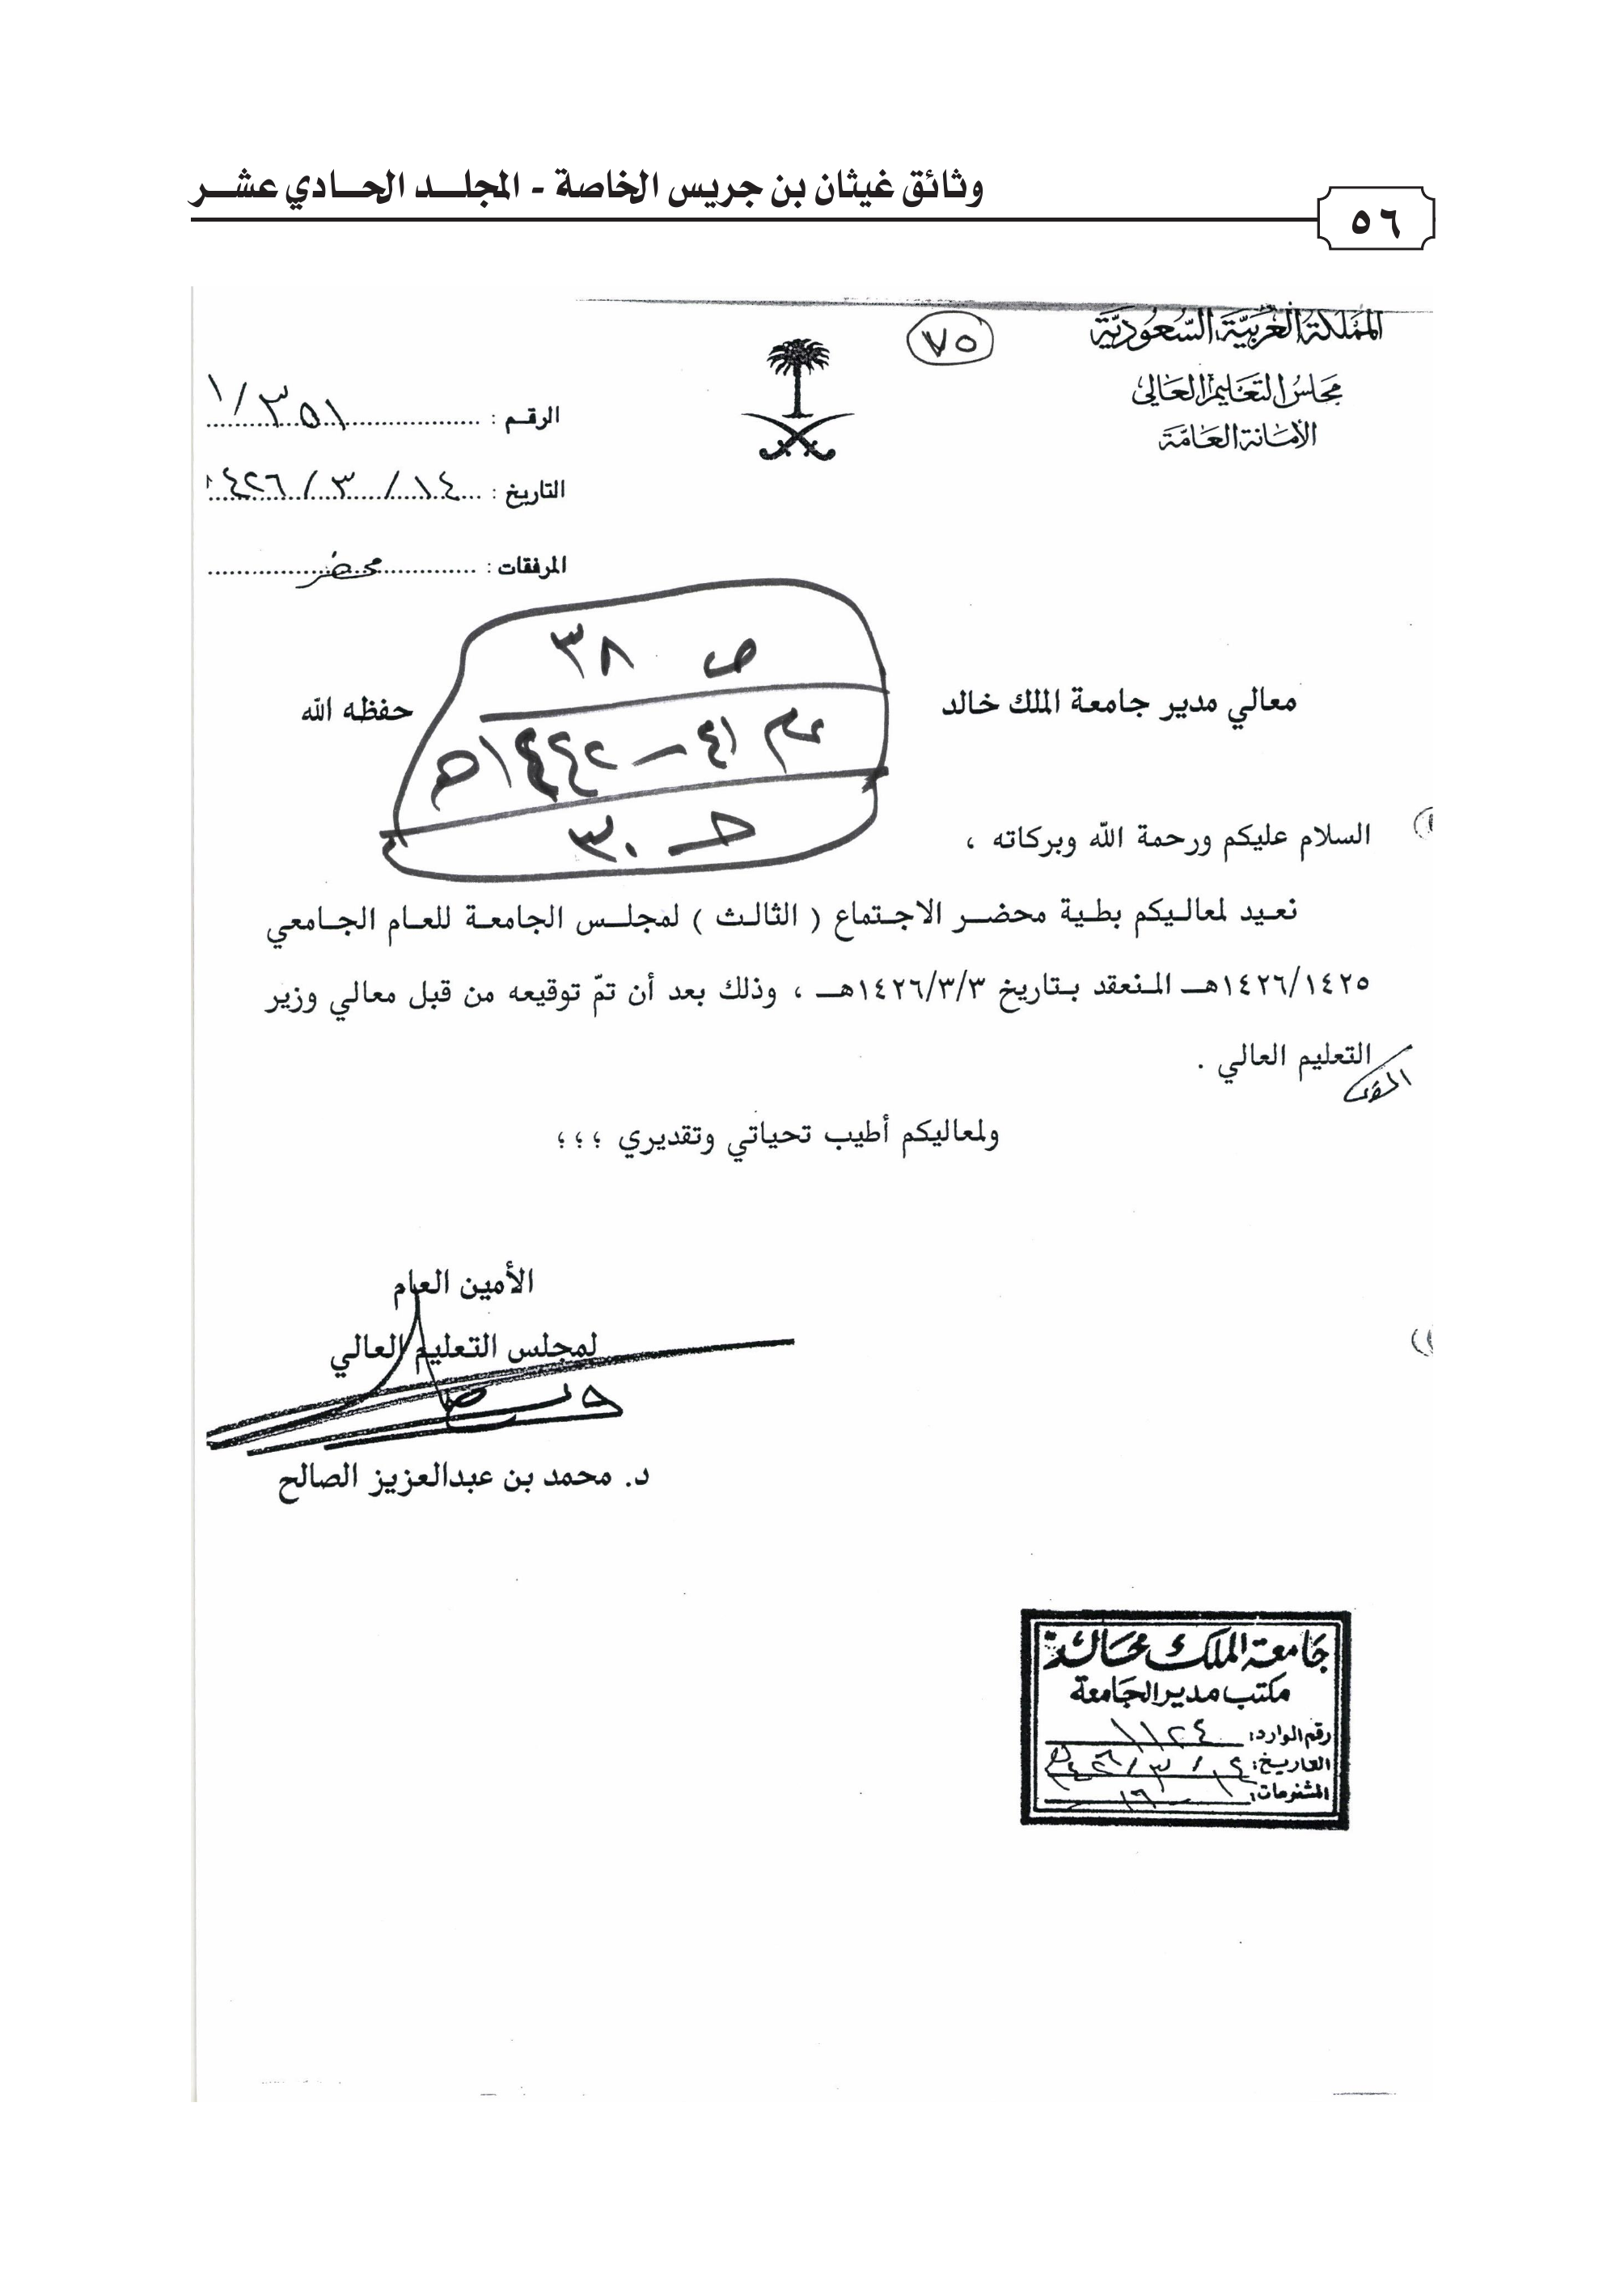 وثائق غيثان بن جريس الخاصة - المجلد الحادي عشر
٥٦
المملكة العربية السعودية
مجلس التعليم العالي
الأمانة العامة
٧٥
الرقم : ١/٣٥١
التاريخ : ١٤ / ٣ / ١٤٢٦
المرفقات : محضر
ص ٣٨
عام ٤١ - ١٤٤٢هـ
حـ ٣٠
معالي مدير جامعة الملك خالد حفظه الله
السلام عليكم ورحمة الله وبركاته ،
نعيد لمعاليكم بطية محضر الاجتماع ( الثالث ) لمجلس الجامعة للعام الجامعي
١٤٢٦/١٤٢٥هـ المنعقد بتاريخ ١٤٢٦/٣/٣هـ ، وذلك بعد أن تمّ توقيعه من قبل معالي وزير
التعليم العالي .
ولمعاليكم أطيب تحياتي وتقديري ؛ ؛ ؛
الأمين العام
لمجلس التعليم العالي
د. محمد بن عبدالعزيز الصالح
جامعة الملك خالد
مكتب مدير الجامعة
رقم الوارد: ١١٢٤
التاريخ:
المشفوعات: ١٦